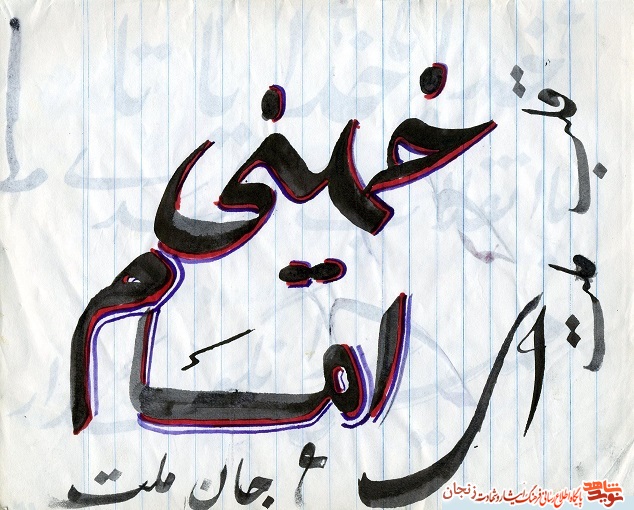 ای
امام
خمینی
قلب ملت
و جان ملت
نوید شاهد
پایگاه اطلاع رسانی فرهنگ ایثار و شهادت زنجان